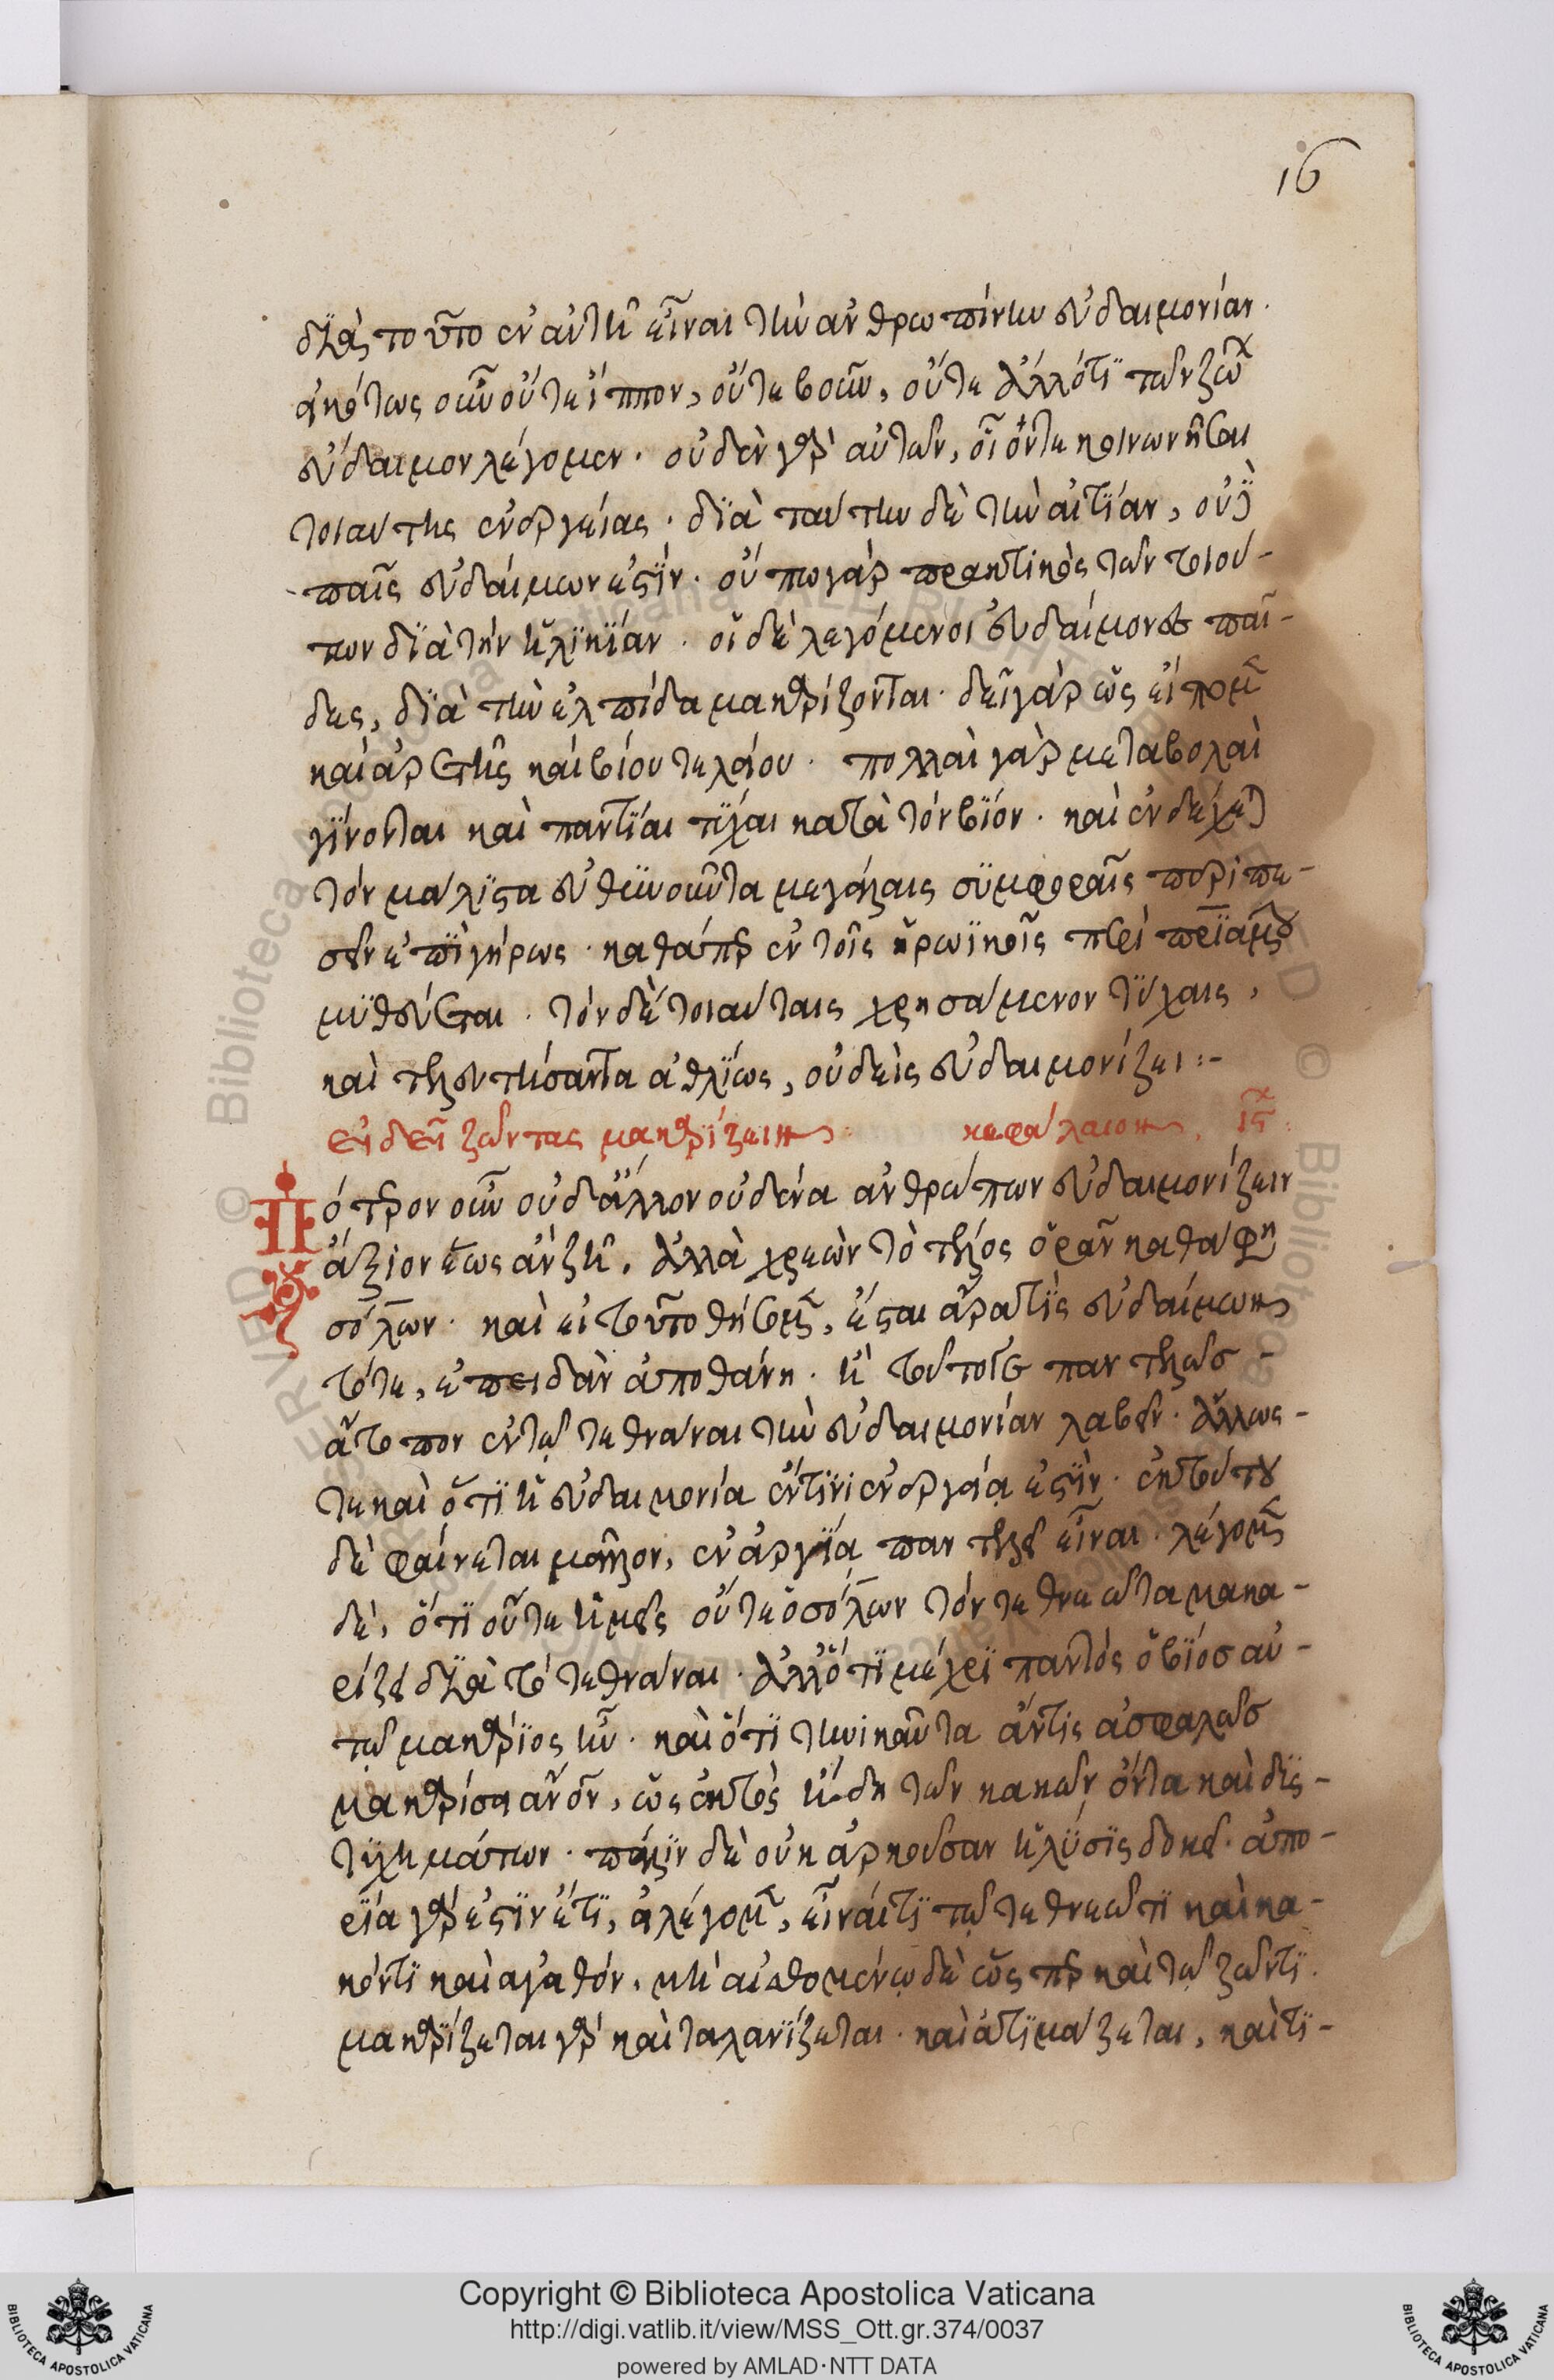 16
διὰ τοῦτο ἐν αὐτῆ εἶναι τὴν ἀνθρωπίνην εὐδαιμονίαν.
εἰκότως οὖν οὔτε ἵππον, οὔτε βοῦν, οὔτε ἄλλό τι τῶν ζώων
εὔδαιμον λέγομεν. οὐδὲν γὰρ αὐτῶν, οἷόν τε κοινωνῆσαι
τοιαύτης ἐνεργείας. διὰ ταύτην δὲ τὴν αἰτίαν, οὐδὲ
παῖς εὐδαίμων ἐστίν. οὔπω γὰρ πρακτικὸς τῶν τοιού-
των διὰ τὴν ἡλικίαν. οἱ δὲ λεγόμενοι εὐδαίμονες παῖ-
δες, διὰ τὴν ἐλπίδα μακαρίζονται. δεῖ γὰρ ὡς εἴπομεν
καὶ ἀρετῆς καὶ βίου τελείου. πολλαὶ γὰρ μεταβολαὶ
γίνονται καὶ παντοῖαι τύχαι κατὰ τὸν βίον. καὶ ἐνδέχεται
τὸν μάλιστα εὐθηνοῦντα μεγάλαις συμφοραῖς περιπε-
σεῖν ἐπὶ γήρως. καθάπερ ἐν τοῖς ἡρωϊκοῖς περὶ πριάμου
μυθεύεται. τὸν δὲ τοιαύταις χρησάμενον τύχαις,
καὶ τελευτήσαντα ἀθλίως, οὐδεὶς εὐδαιμονίζει:-
εἰ δεῖ ζῶντας μακαρίζειν κεφάλαιον, ιϛ:
Πότερον οὖν οὐδ' ἄλλον οὐδένα ἀνθρώπων εὐδαιμονίζειν
ἄξιον ἕως ἂν ζῆ. ἀλλὰ χρεὼν τὸ τέλος ὁρᾶν καθά φησι
σόλων. καὶ εἰ τοῦτο θήσομεν, ἔσται ἆρά τις εὐδαίμων
τότε, ἐπειδὰν ἀποθάνη. ἢ τοῦτό γε παντελῶσ
ἄτοπον ἐν τῷ τεθνάναι τὴν εὐδαιμονίαν λαβεῖν. ἄλλως-
τε καὶ ὅτι ἡ εὐδαιμονία ἔν τινι ἐνεργείᾳ ἐστὶν. ἐκ τούτου
δὲ φαίνεται μᾶλλον, ἐν ἀργίᾳ παντελεῖ εἶναι. λέγομεν
δὲ, ὅτι οὔτε ἡμεῖς οὔτε ὁ σόλων τὸν τεθνεῶτα μακα-
ρίζει διὰ τὸ τεθνάναι. ἀλλ' ὅτι μέχρι παντὸς ὁ βίοσ αὐ-
τῷ μακάριος ἦν. καὶ ὅτι τηνικαῦτα ἄν τις ἀσφαλῶσ
μακαρίσειεν ἂν, ὡς ἐκτὸς ἤδη τῶν κακῶν ὄντα καὶ δυς-
τυχημάτων. πάλιν δὲ οὐκ ἀρκοῦσαν ἡ λύσις δοκεῖ. ἀπο-
ρία γάρ ἐστιν ἔτι, εἰ λέγομεν, εἶναί τι τῷ τεθνεῶτι καὶ κα-
κόν τι καὶ ἀγαθόν. μὴ αἰσθομένῳ δὲ ὥς περ καὶ τῷ ζῶντι.
μακαρίζεται γὰρ καὶ ταλανίζεται. καὶ ἀτιμάζεται, καὶ τι-
Copyright © Biblioteca Apostolica Vaticana
http://digi.vatlib.it/view/MSS_Ott.gr.374/0037
powered by AMLAD·NTT DATA